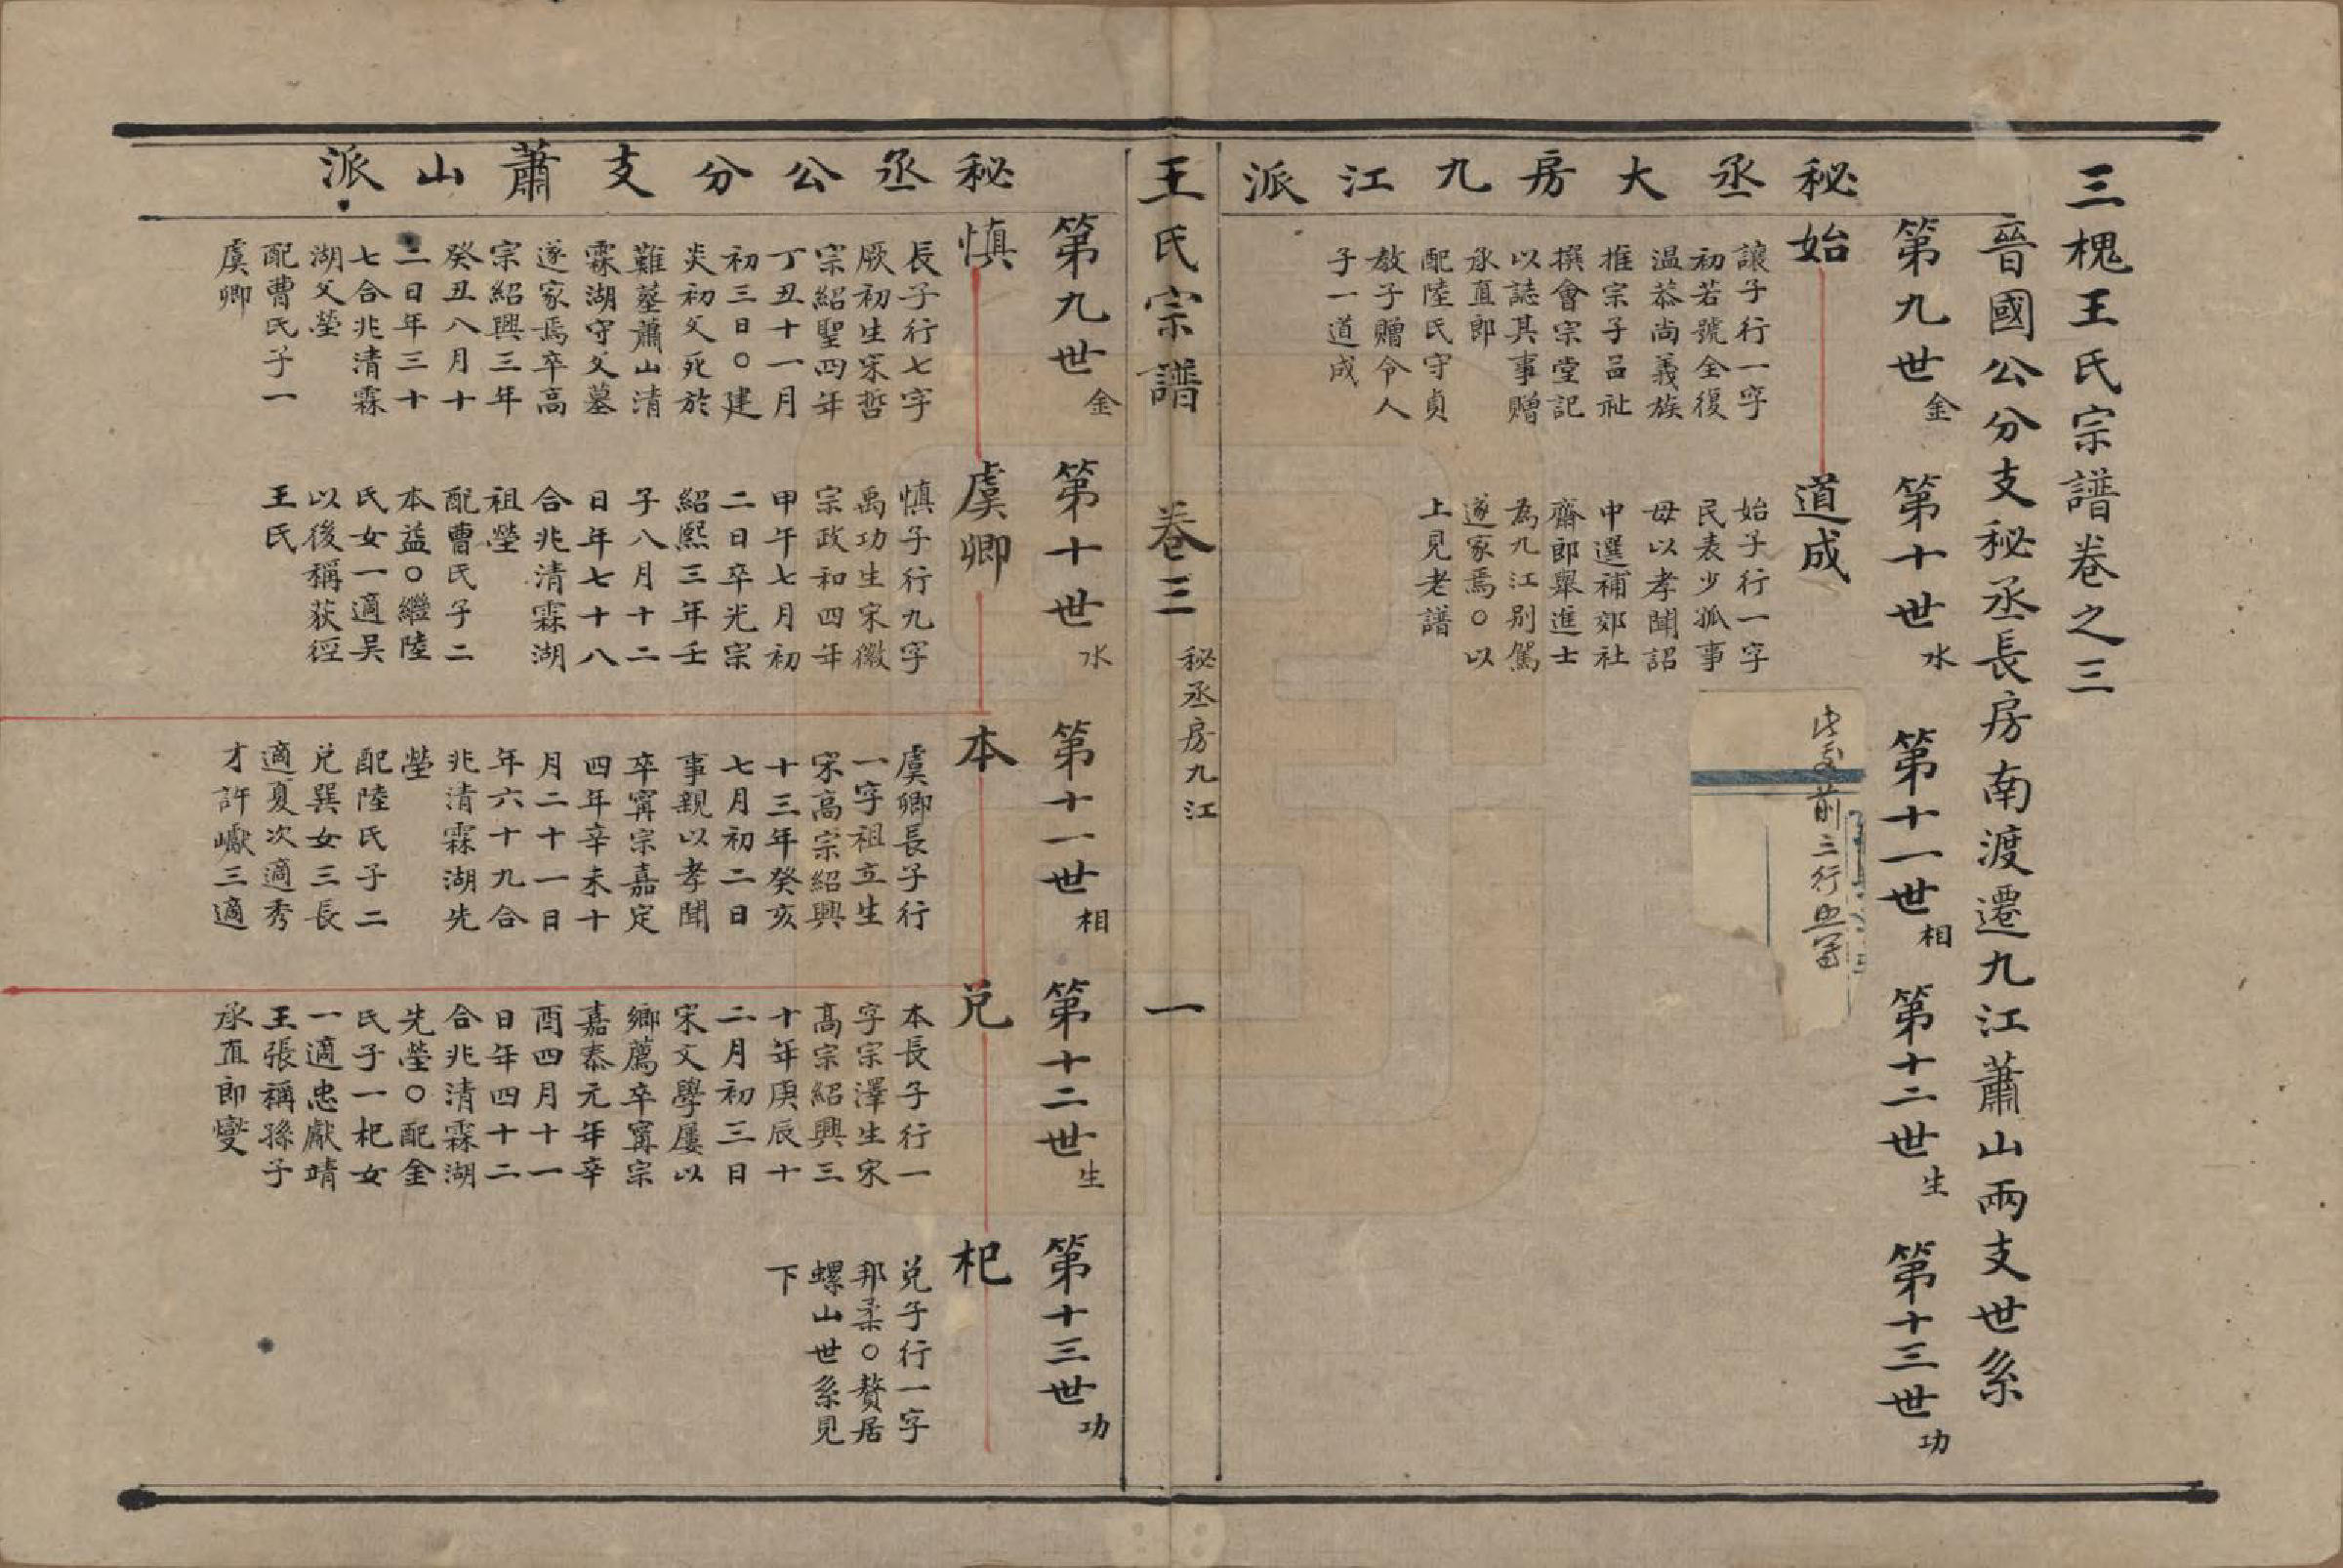 三槐王氏宗譜卷之三
晉國公分支秘丞長房南渡遷九江蕭山兩支世系
秘丞大房九江派
第九世金
第十世水
第十一世相
第十二世生
第十三世功
始
讓子行一字
初若號全復
温恭尚義族
推宗子品祉
撰會宗堂記
以誌其事贈
承直郎
配陸氏守貞
教子贈令人
子一道成
道成
始子行一字
民表少孤事
母以孝聞詔
中選補郊社
齋郎舉進士
為九江别駕
遂家焉〇以
上見老譜
此前三行
王氏宗譜
卷三
秘丞房九江
一
秘丞公分支蕭山派
第九世金
第十世水
第十一世相
第十二世生
第十三世功
慎
長子行七字
厥初生宋哲
宗紹聖四年
丁丑十一月
初三日〇建
炎初父死於
難墓蕭山清
霖湖守父墓
遂家焉卒高
宗紹興三年
癸丑八月十
二日年三十
七合兆清霖
湖父塋
配曹氏子一
虞卿
虞卿
慎子行九字
禹功生宋徽
宗政和四年
甲午七月初
二日卒光宗
紹熙三年壬
子八月十二
日年七十八
合兆清霖湖
祖塋
配曹氏子二
本益〇繼陸
氏女一適吴
以後稱荻徑
王氏
本
虞卿長子行
一字祖立生
宋高宗紹興
十三年癸亥
七月初二日
事親以孝聞
卒寗宗嘉定
四年辛未十
月二十一日
年六十九合
兆清霖湖先
塋
配陸氏子二
兑巽女三長
適夏次適秀
才許巘三適
兑
本長子行一
字宗澤生宋
高宗紹興三
十年庚辰十
二月初三日
宋文學屢以
鄉薦卒寗宗
嘉泰元年辛
酉四月十一
日年四十二
合兆清霖湖
先塋〇配金
氏子一杞女
一適忠獻靖
王張稱孫子
承直郎燮
杞
兑子行一字
邦柔〇贅居
螺山世系見
下